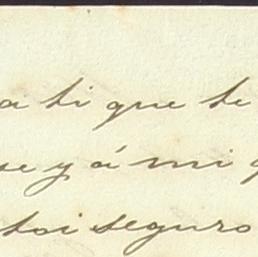 a ti que te
se y á mi q
toi seguro